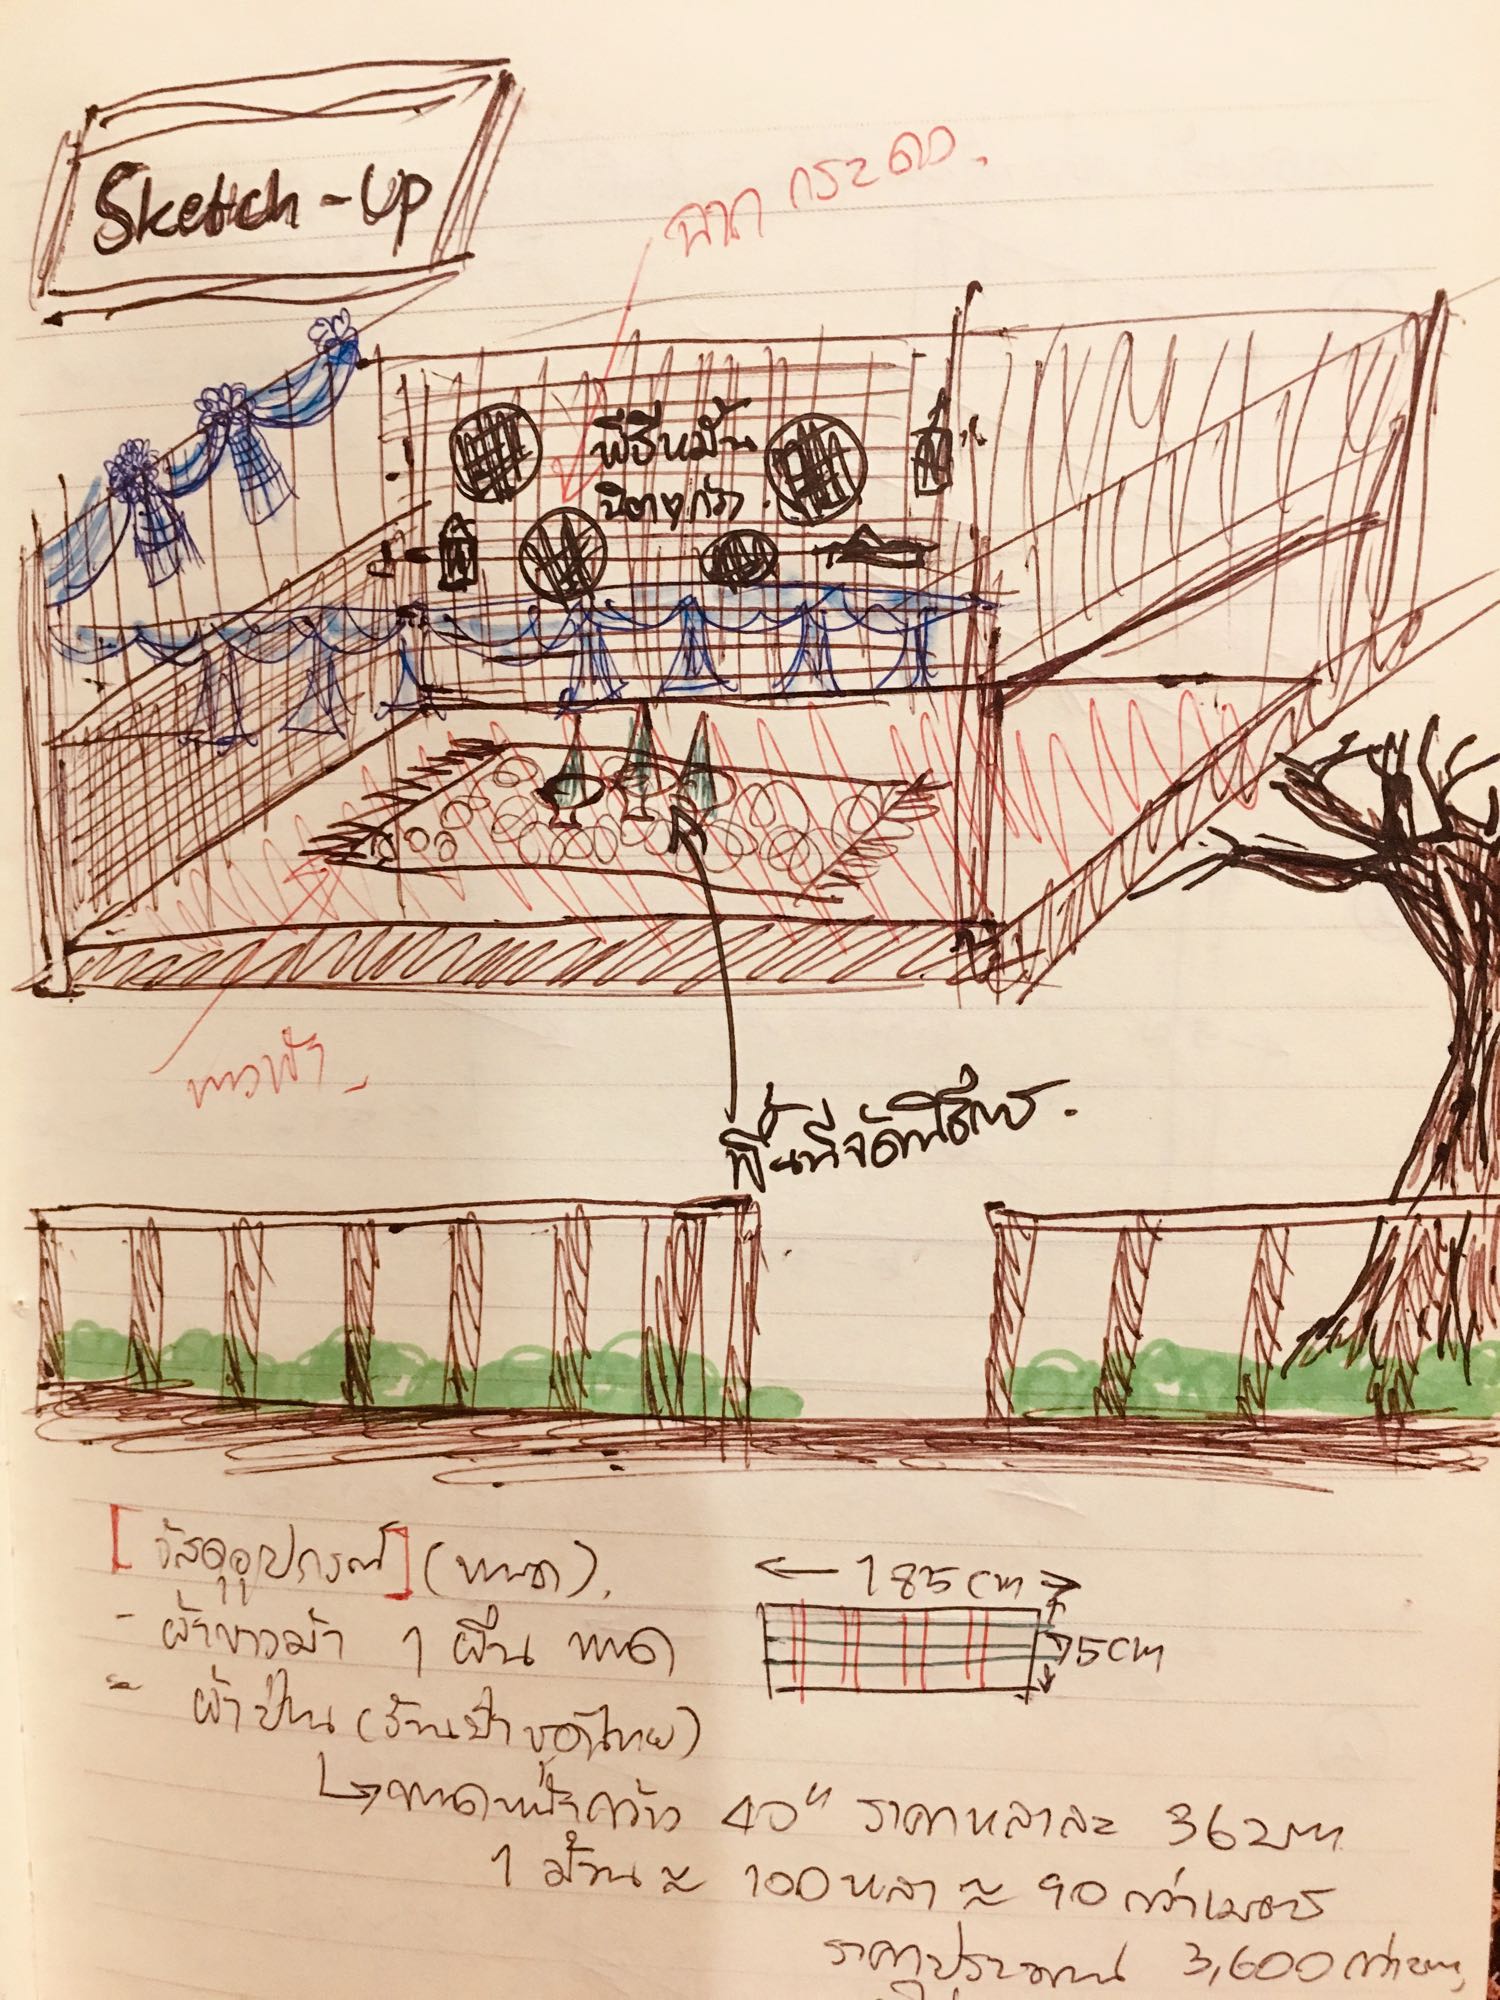 Sketch-Up
ฉาก กระดง.
พิธีหมั้น
ขาวม้า
พื้นที่จัดพิธีการ.
[วัสดุอุปกรณ์] (ขนาด).
- ผ้าขาวม้า 1 ผืน ขนาด
185cm
75cm
- ผ้าป่าน (ร้านป้าชุดไทย)
↳ ขนาดหน้ากว้าง 40" ราคาหลาละ 36 บาท
1 ม้วน ≈ 100 หลา ≈ 90 กว่าเมตร
ราคาประมาณ 3,600 กว่าบาท